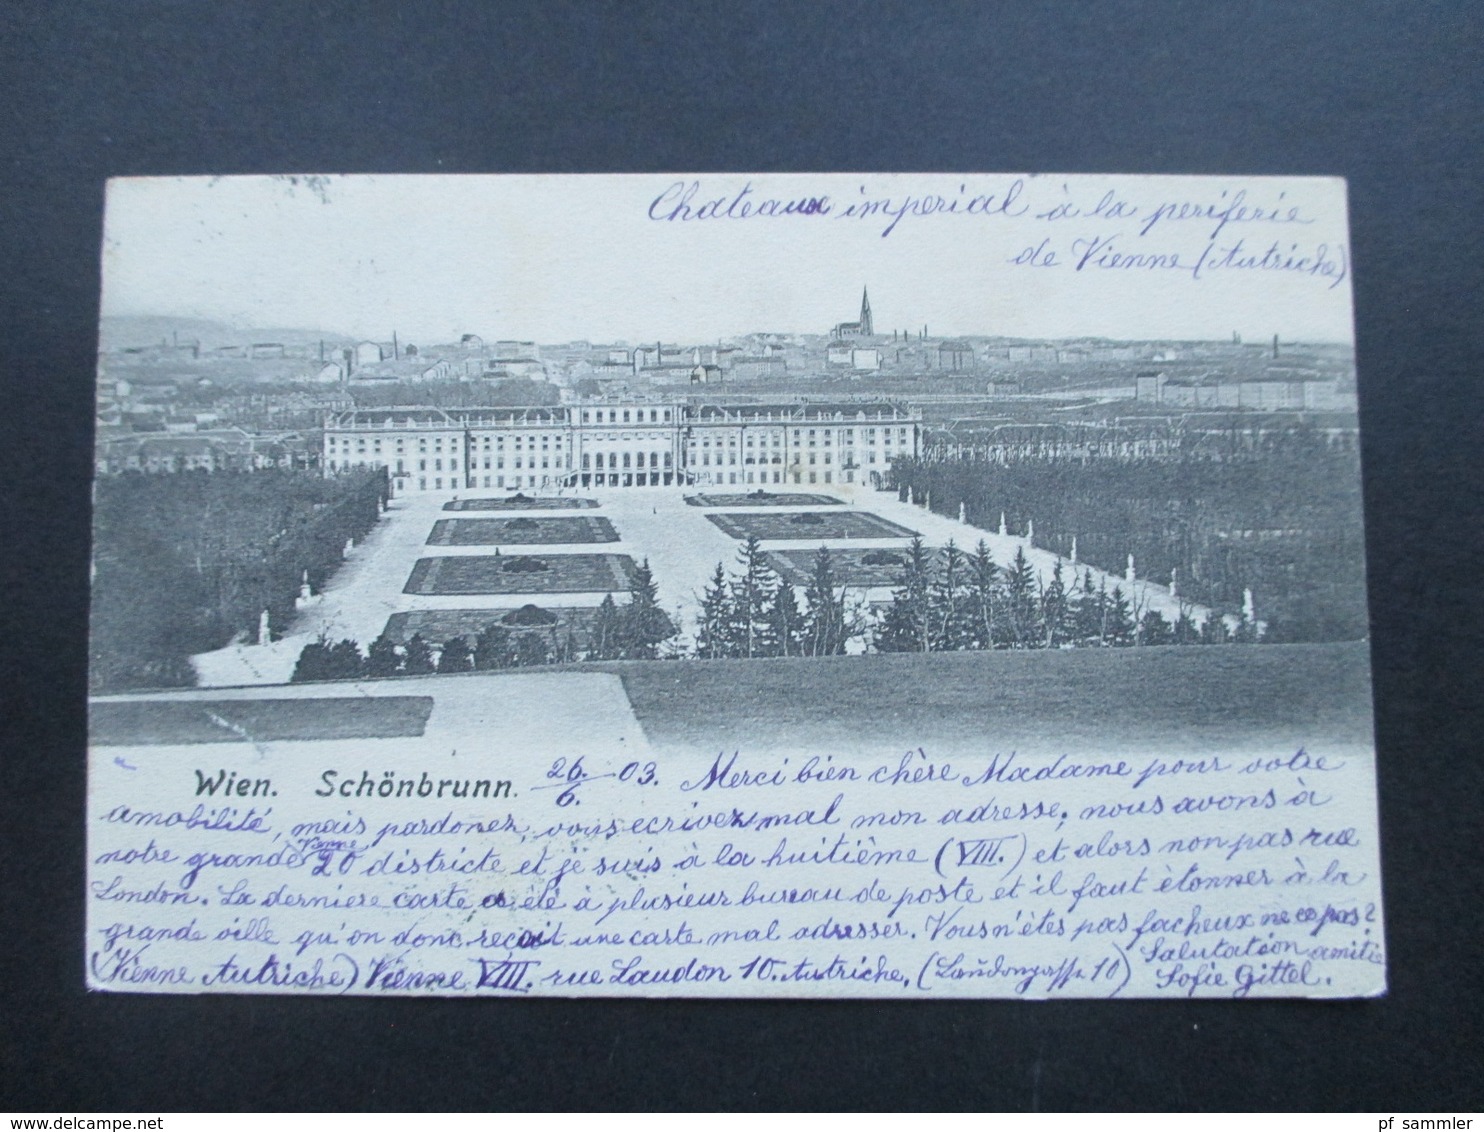 Chateaux imperial à la periferie
de Vienne (Autriche)
Wien. Schönbrunn. 26./6. 03. Merci bien chère Madame pour votre
amobilité, mais pardonez, vous ecrivez mal mon adresse; nous avons à
notre grande Vienne 20 districte et je suis à la huitième (VIII.) et alors non pas rue
London. La derniere carte a été à plusieur bureau de poste et il faut ètonner à la
grande ville qu'on donc reçoit une carte mal adresser. Vous n'êtes pas facheux ne ce pas?
Salutation amitie
(Vienne Autriche) Vienne VIII. rue Laudon 10. Autriche. (Laudongasse 10) Sofie Gittel.
pf sammler